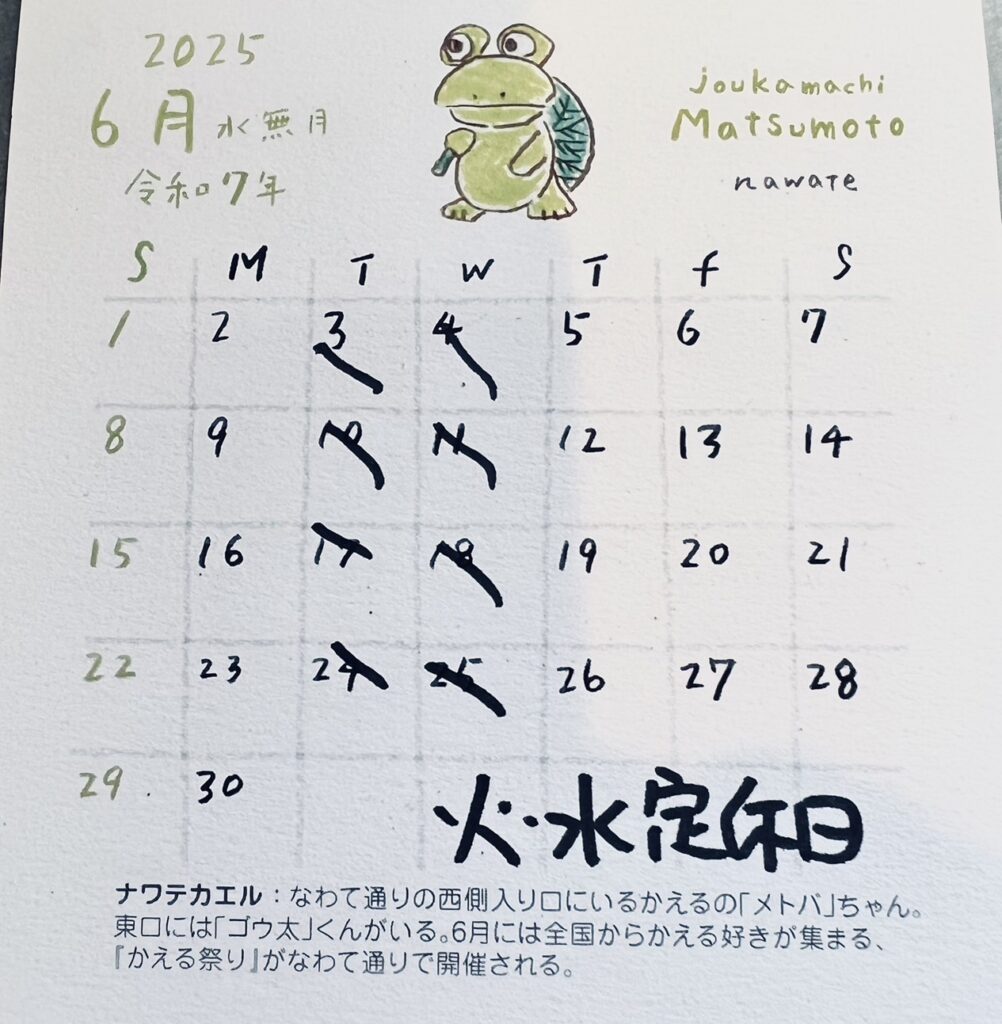 2025
6月 水無月
令和7年
joukamachi
Matsumoto
nawate
S M T W T f S
1 2 3 4 5 6 7
8 9 10 11 12 13 14
15 16 17 18 19 20 21
22 23 24 25 26 27 28
29 30
火・水定休日
ナワテカエル：なわて通りの西側入り口にいるかえるの「メトバ」ちゃん。
東口には「ゴウ太」くんがいる。6月には全国からかえる好きが集まる、
『かえる祭り』がなわて通りで開催される。